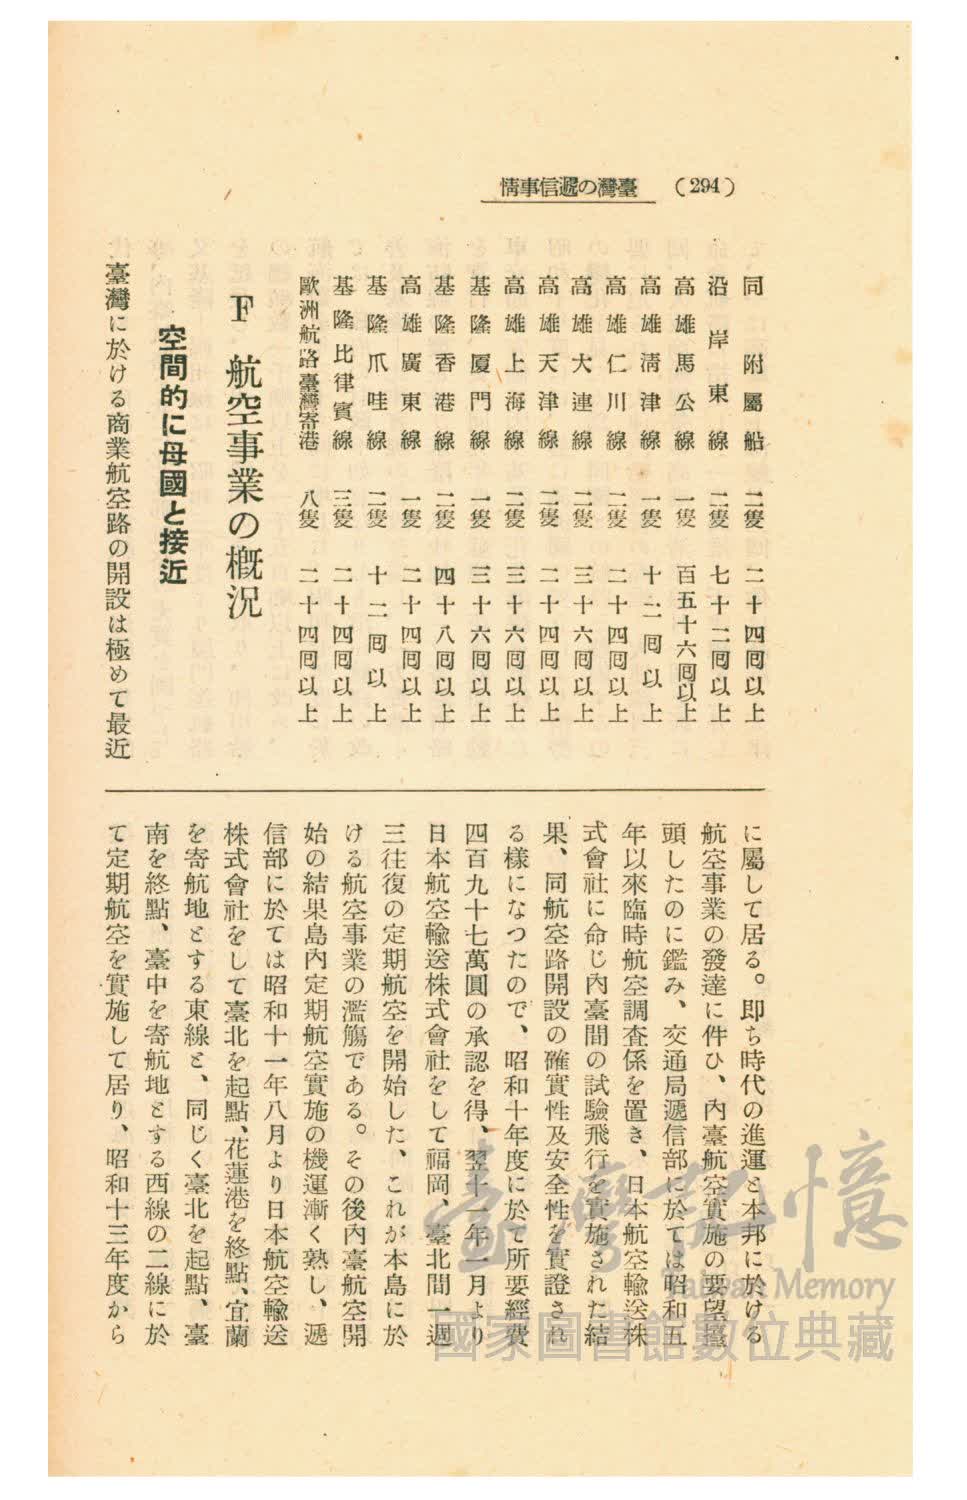 臺灣の遞信事情 (294)
同附屬船 二隻 二十四囘以上
沿岸東線 二隻 七十二囘以上
高雄馬公線 一隻 百五十六囘以上
高雄淸津線 一隻 十二囘以上
高雄仁川線 二隻 二十四囘以上
高雄大連線 二隻 三十六囘以上
高雄天津線 二隻 二十四囘以上
高雄上海線 二隻 三十六囘以上
基隆厦門線 一隻 三十六囘以上
基隆香港線 二隻 四十八囘以上
高雄廣東線 一隻 二十四囘以上
基隆爪哇線 二隻 十二囘以上
基隆比律賓線 三隻 二十四囘以上
歐洲航路臺灣寄港 八隻 二十四囘以上
F 航空事業の槪況
空間的に母國と接近
臺灣に於ける商業航空路の開設は極めて最近
に屬して居る。卽ち時代の進運と本邦に於ける
航空事業の發達に件ひ、內臺航空實施の要望擡
頭したのに鑑み、交通局遞信部に於ては昭和五
年以來臨時航空調査係を置き、日本航空輸送株
式會社に命じ內臺間の試驗飛行を實施された結
果、同航空路開設の確實性及安全性を實證され
る樣になつたので、昭和十年度に於て所要經費
四百九十七萬圓の承認を得、翌十一年一月より
日本航空輸送株式會社をして福岡、臺北間一週
三往復の定期航空を開始した、これが本島に於
ける航空事業の濫觴である。その後內臺航空開
始の結果島內定期航空實施の機運漸く熟し、遞
信部に於ては昭和十一年八月より日本航空輸送
株式會社をして臺北を起點、花蓮港を終點、宜蘭
を寄航地とする東線と、同じく臺北を起點、臺
南を終點、臺中を寄航地とする西線の二線に於
て定期航空を實施して居り、昭和十三年度から
臺灣記憶
Taiwan Memory
國家圖書館數位典藏